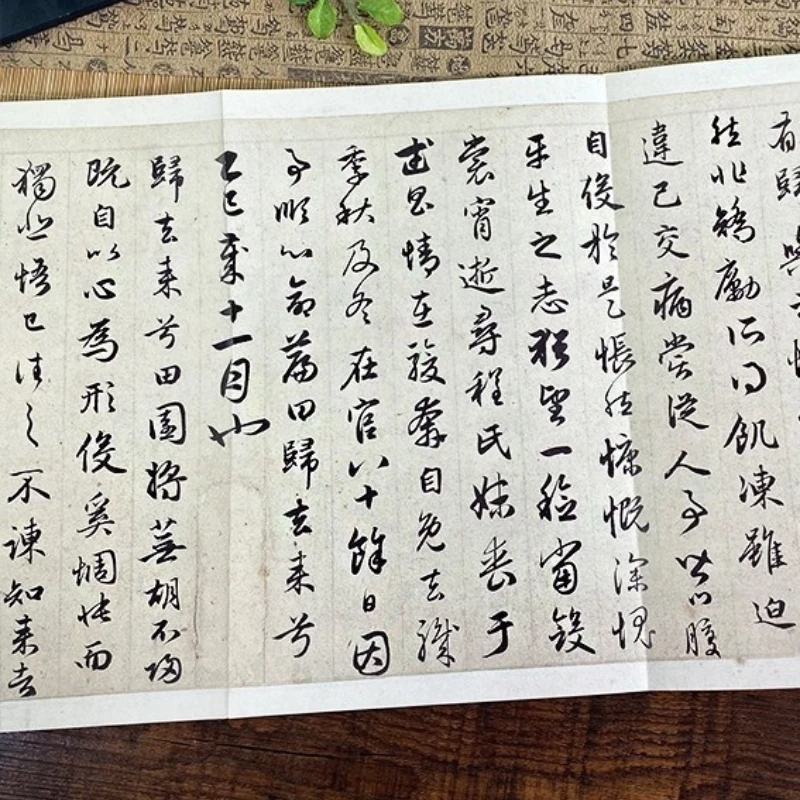 有歸與之情
然非矯勵所得飢凍雖迫
違己交病嘗從人事皆口腹
自役於是悵然慷慨深愧
平生之志猶望一稔當斂
裳宵逝尋程氏妹喪于
武昌情在駿奔自免去職
季秋及冬在官八十餘日因
事順心命篇曰歸去来兮
乙巳歲十一月也
歸去来兮田園将蕪胡不歸
既自以心為形役奚惆悵而
獨悲悟已往之不諫知来者